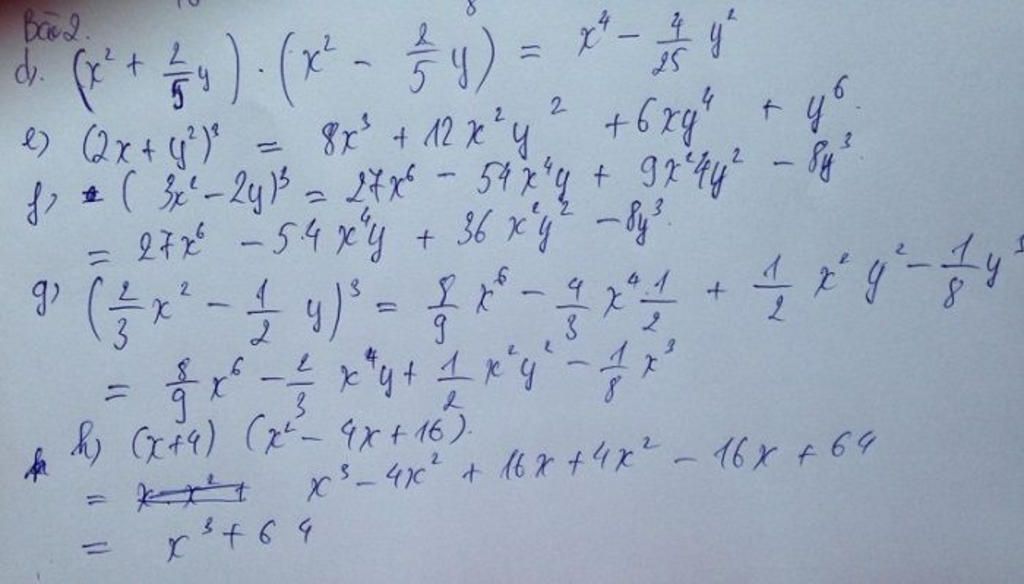 Bài 2.
d). (x² + 2/5 y) . (x² - 2/5 y) = x⁴ - 4/25 y²
e) (2x + y²)³ = 8x³ + 12x²y² + 6xy⁴ + y⁶.
f) (3x² - 2y)³ = 27x⁶ - 54x⁴y + 9x²4y² - 8y³
= 27x⁶ - 5.4x⁴y + 36x²y² - 8y³.
g) (2/3 x² - 1/2 y)³ = 8/9 x⁶ - 4/3 x⁴.1/2 + 1/2 x²y² - 1/8 y³
= 8/9 x⁶ - 2/3 x⁴y + 1/2 x²y² - 1/8 x³
h) (x+4) (x² - 4x + 16).
= x³ - 4x² + 16x + 4x² - 16x + 64
= x³ + 64